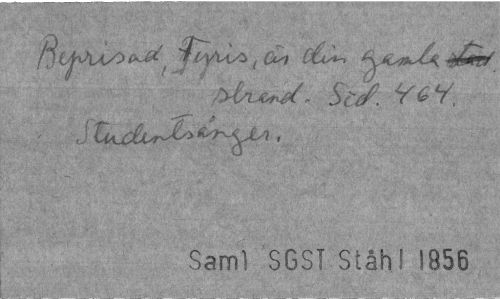 Beprisad, Fyris, är din gamla stad
strand. Sid. 464.
Studentsånger.
Saml SGST Ståhl 1856